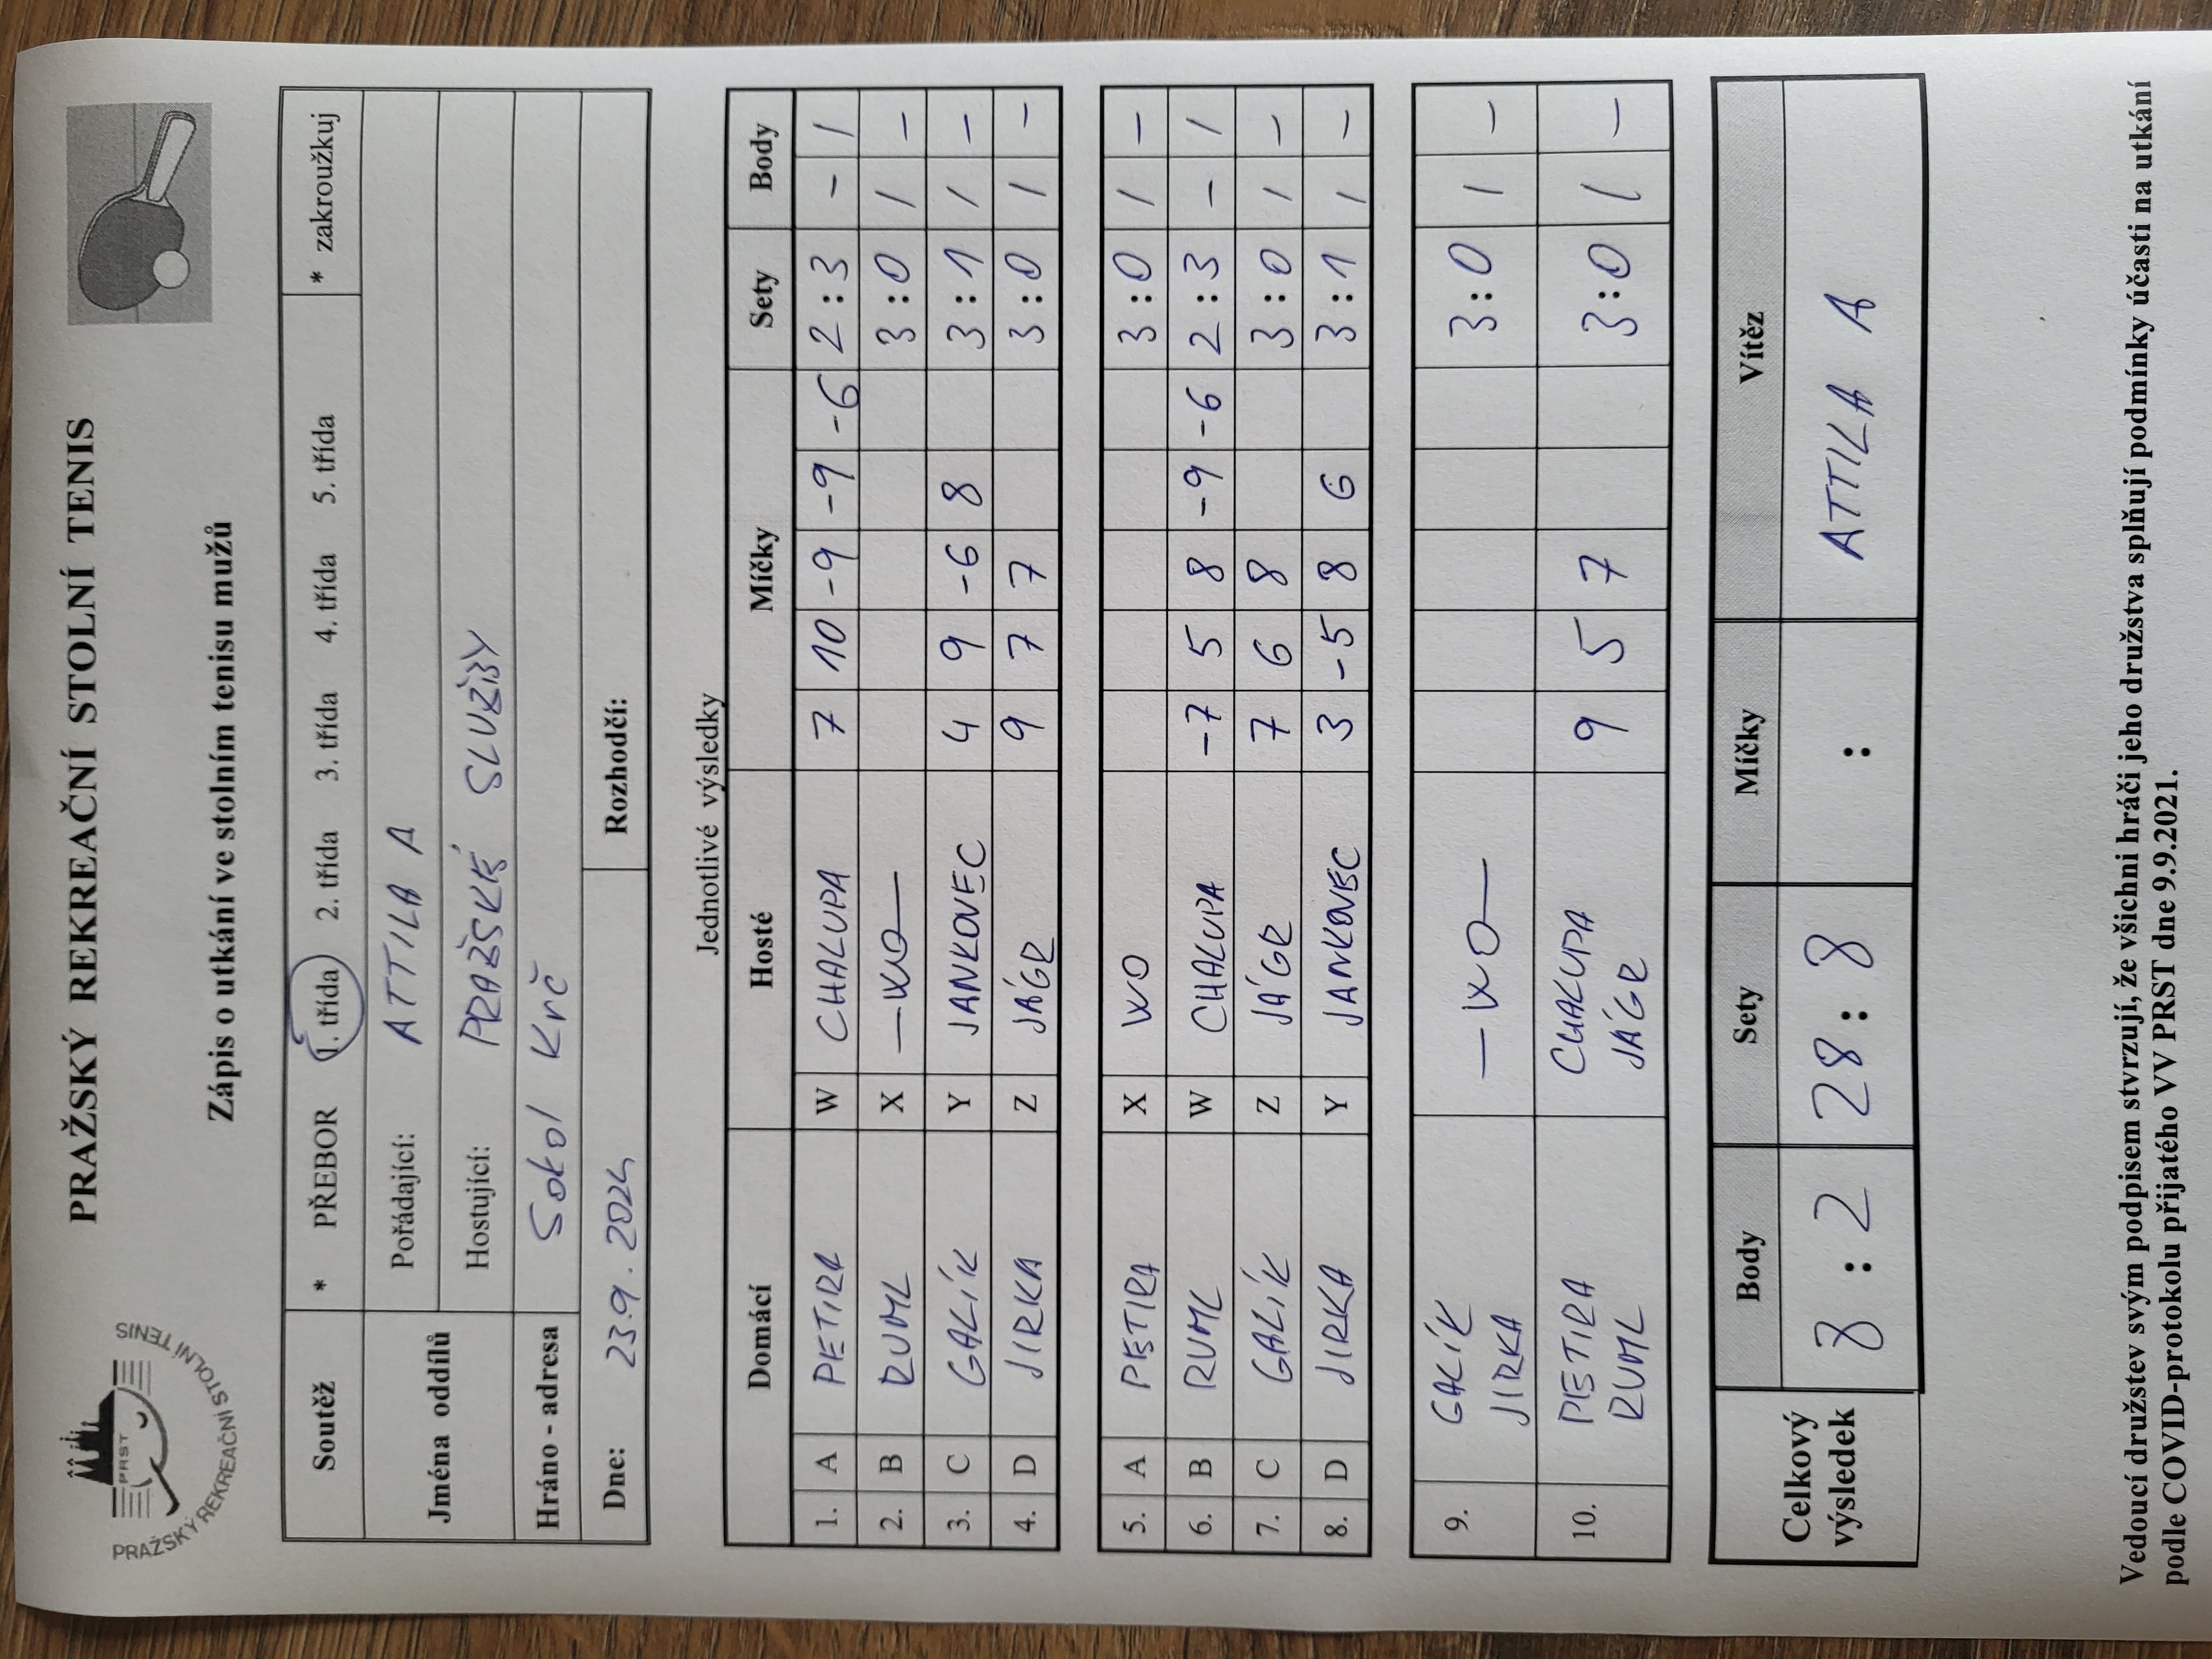 PRAŽSKÝ REKREAČNÍ STOLNÍ TENIS
PRST
PRAŽSKÝ REKREAČNÍ STOLNÍ TENIS
Zápis o utkání ve stolním tenisu mužů
Soutěž * PŘEBOR 1. třída 2. třída 3. třída 4. třída 5. třída * zakroužkuj
Jména oddílů Pořádající: ATTILA A
Hostující: PRAŽSKÉ SLUŽBY
Hráno - adresa Sokol Krč
Dne: 23.9.2024 Rozhodčí:
Jednotlivé výsledky
Domácí Hosté Míčky Sety Body
1. A PETIRA W CHALUPA 7 10 -9 -9 -6 2:3 – 1
2. B RUML X –WO– 3:0 1 –
3. C GALÍK Y JANKOVEC 4 9 -6 8 3:1 1 –
4. D JIRKA Z JÁGR 9 7 7 3:0 1 –
5. A PETIRA X WO 3:0 1 –
6. B RUML W CHALUPA -7 5 8 -9 -6 2:3 – 1
7. C GALÍK Z JÁGR 7 6 8 3:0 1 –
8. D JIRKA Y JANKOVEC 3 -5 8 6 3:1 1 –
9. GALÍK JIRKA –WO– 3:0 1 –
10. PETIRA RUML CHALUPA JÁGR 9 5 7 3:0 1 –
Celkový výsledek Body Sety Míčky Vítěz
8:2 28:8 : ATTILA A
Vedoucí družstev svým podpisem stvrzují, že všichni hráči jeho družstva splňují podmínky účasti na utkání
podle COVID-protokolu přijatého VV PRST dne 9.9.2021.